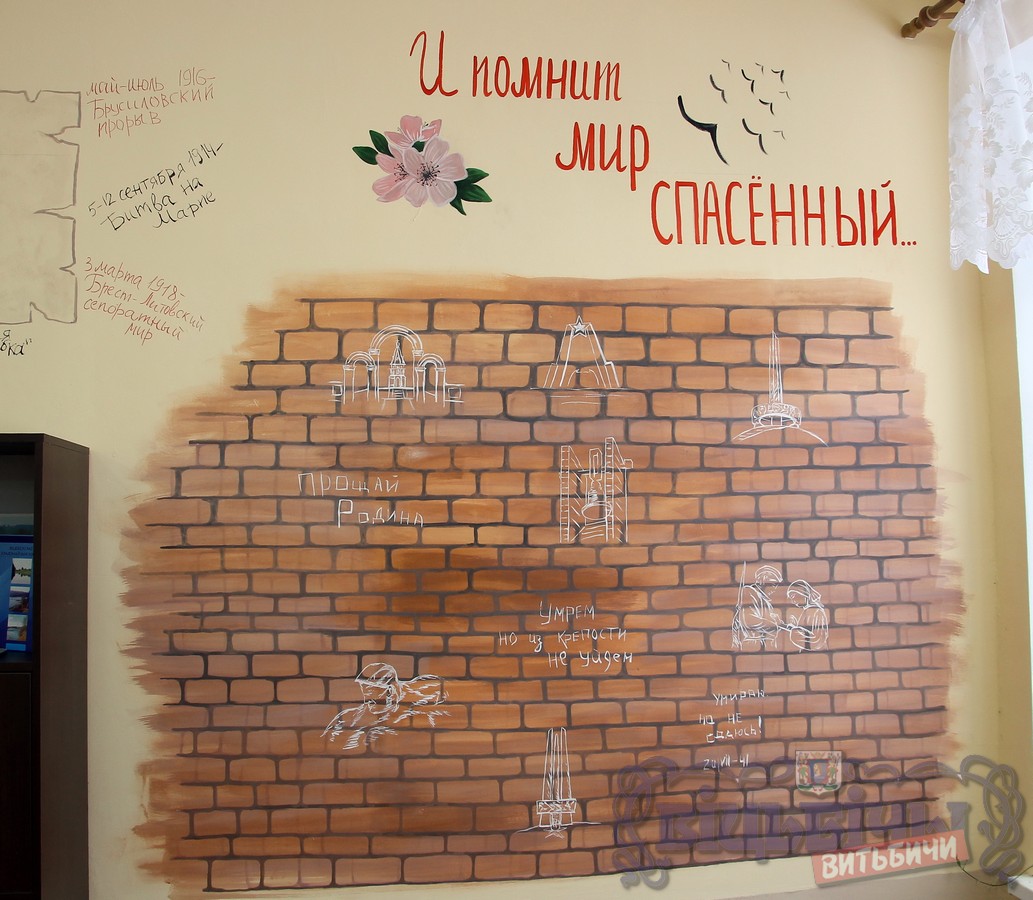 И помнит
мир
СПАСЁННЫЙ...
май-июль 1916-
Брусиловский
прорыв
5-12 сентября 1914-
-Битва на
Марне
3 марта 1918-
Брест-Литовский
сепоратный
мир
Прощай
Родина
Умрем
но из крепости
не уйдем
умираю
но не
сдаюсь!
20/VII-41
Віцьбічы
ВИТЬБИЧИ